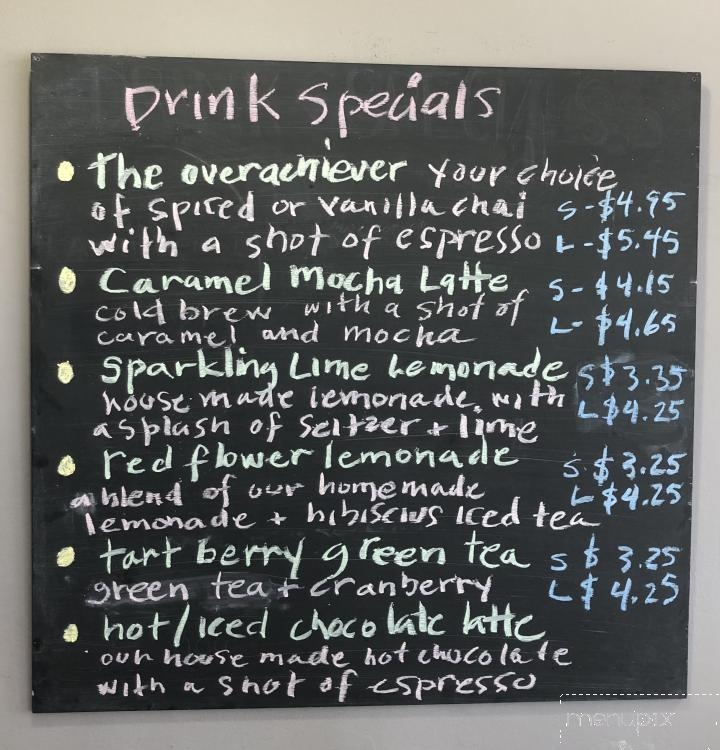 Drink Specials
The overachiever your choice
of spiced or vanilla chai S-$4.95
with a shot of espresso L-$5.45
Caramel Mocha Latte S-$4.15
cold brew with a shot of
caramel and mocha L-$4.65
Sparkling Lime Lemonade S $3.35
house made lemonade, with L $4.25
a splash of seltzer + lime
red flower lemonade S $3.25
a blend of our homemade L $4.25
lemonade + hibiscius iced tea
tart berry green tea S $3.25
green tea + cranberry L $4.25
hot/iced chocolate latte
our house made hot chocolate
with a shot of espresso
menupix